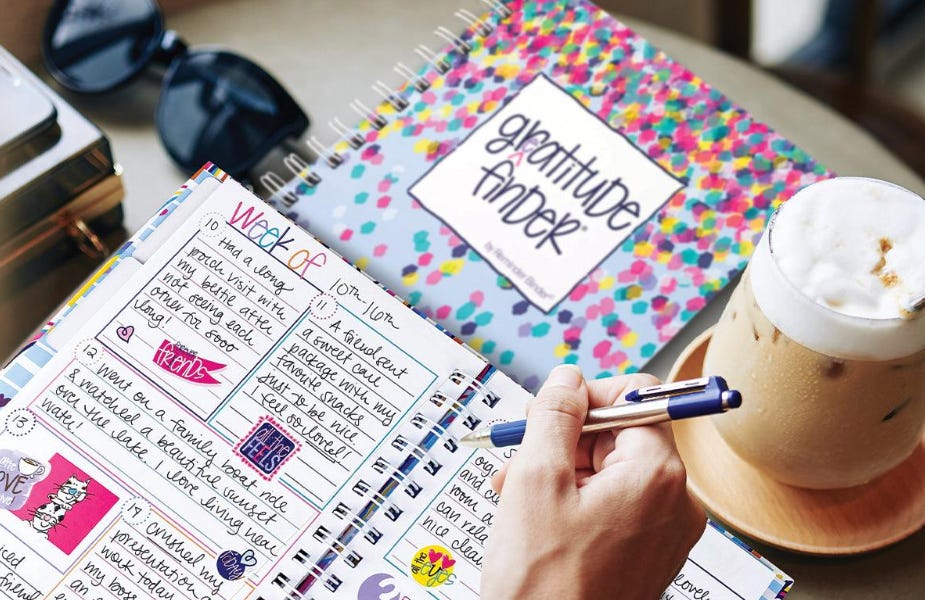 greatitude
finder®
by Reminder Binder®
Week of
10th-16th
10
Had a long
porch visit with
my bestie after
not seeing each
other for sooo
long!
friends
A friend sent
a sweet call
package with my
favourite snacks
Just to be nice
I feel so loved!
all the
FEELS
12
Went on a family boat ride
& watched a beautiful sunset
over the lake. I love living near
water!
13
LOVE
14
Crushed my
presentation
work today
my boss
today
and
room a
can rela
nice clean
all the
eyes
lovely